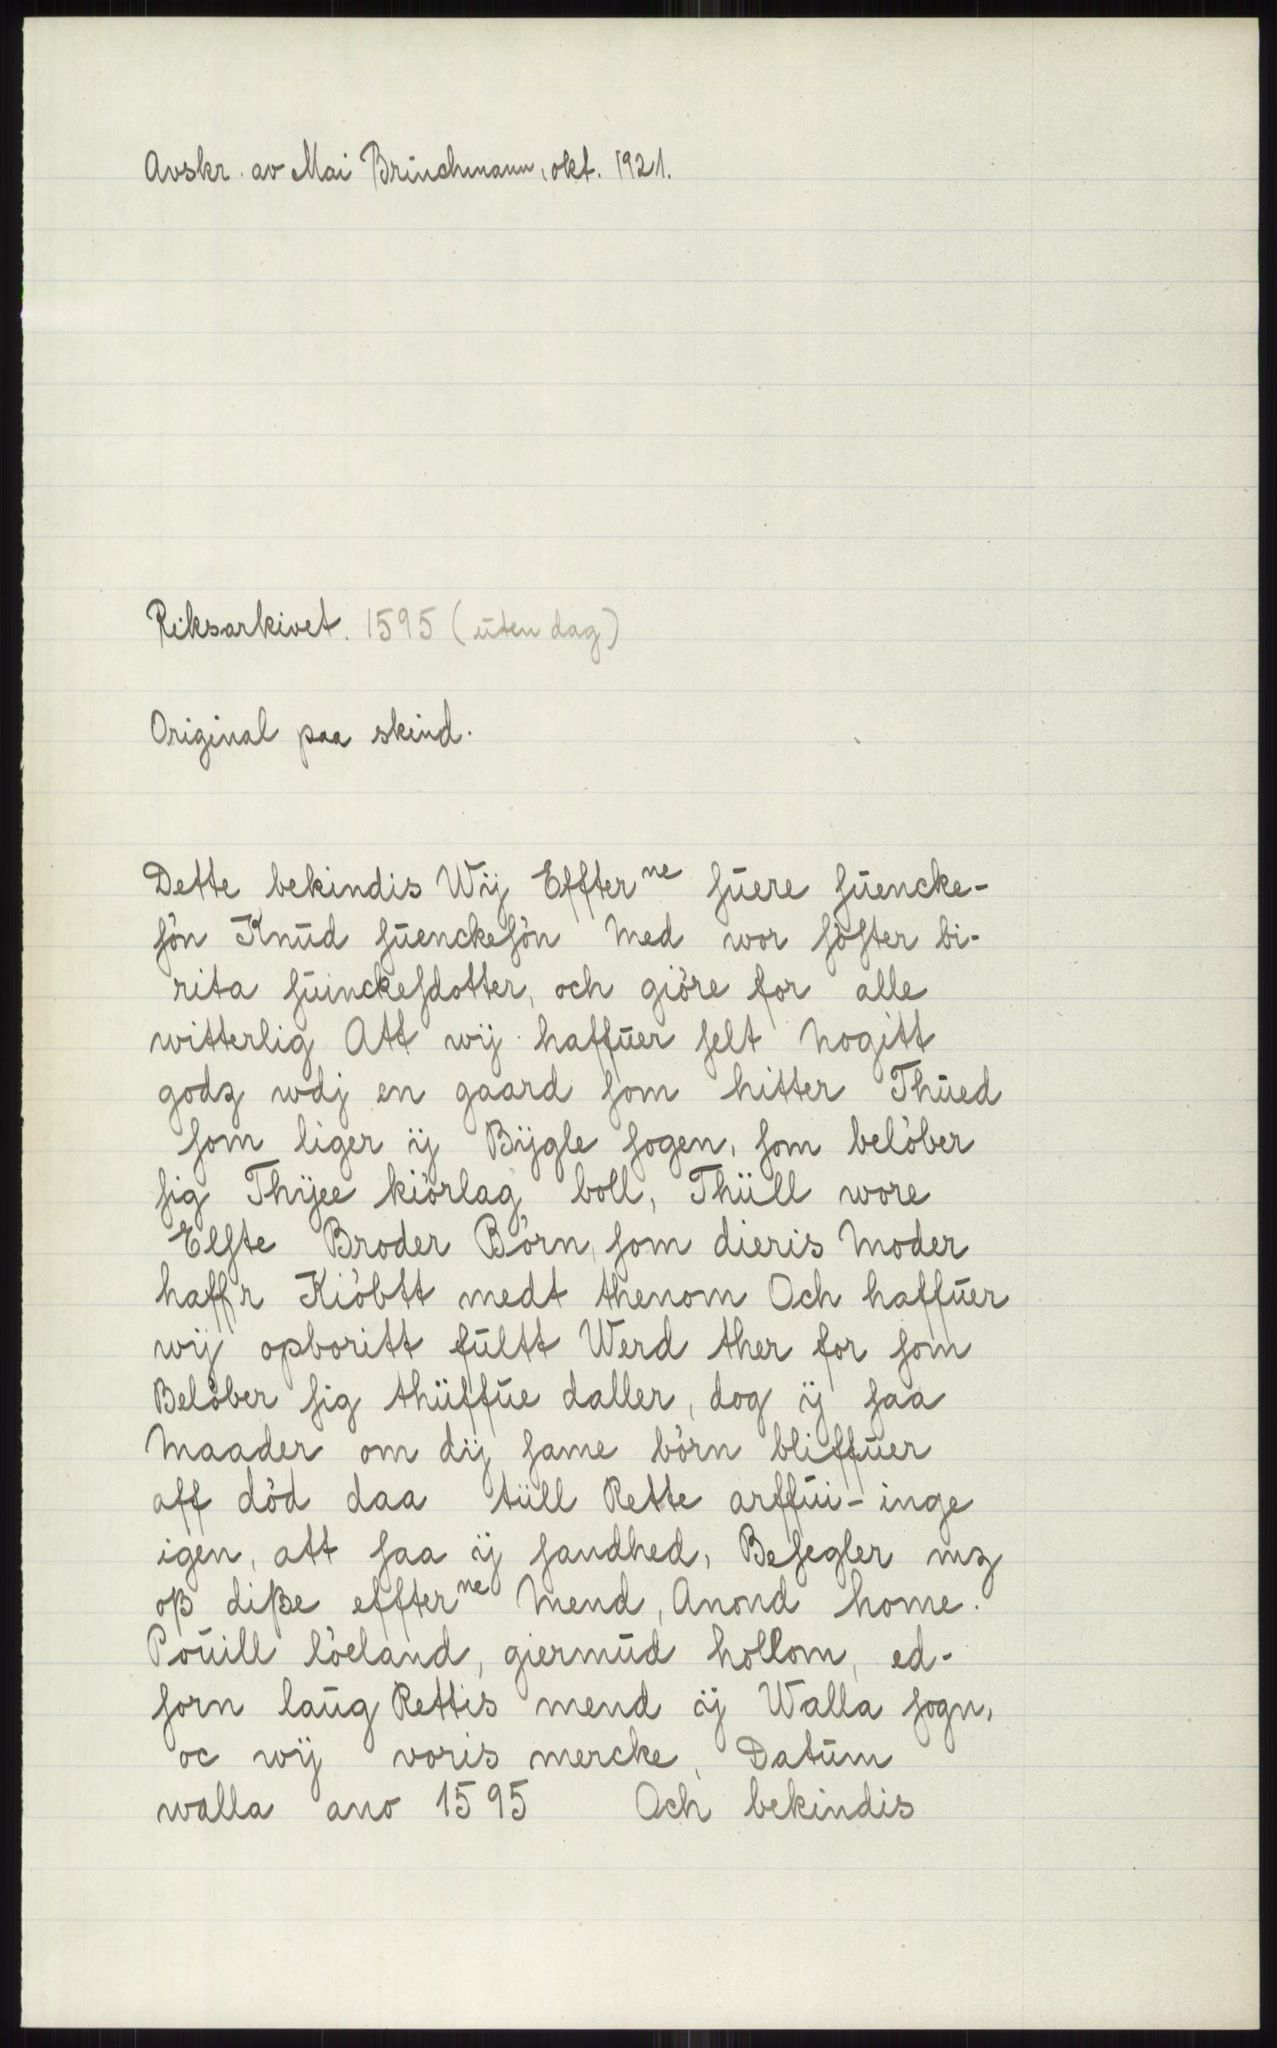 Avskr. av Mai Brinchmann, okt. 1921.
Riksarkivet. 1595 (uten dag)
Original paa skind.
Dette bekindis Wij Effter ne suere suencke-
søn Knud suenckesøn Med wor søster bi-
rita suinckesdotter, och giøre for alle
witterlig Att wij haffuer selt Nogitt
godz wdj en gaard som hitter Thued
som liger ij Bijgle sogen, som beløber
sig Thijee kiørlag boll, Thüll wore
Elste Broder Børn, som dieris Moder
haffr Kiøbtt medt thenom Och haffuer
wij opboritt fultt Werd ther for som
Beløber sig thüffue daller, dog ij saa
Maader om dij same børn bliffuer
aff død daa tüll Rette arffui-inge
igen, att saa ij sandhed, Besegler mz
oß diße effter ne Mend, Anond home.
Pouill løeland, giermud hollom, ed-
sorn laug Rettis mend ij Walla sogn,
oc wij voris mercke, Datum
walla ano 1595 Och bekindis